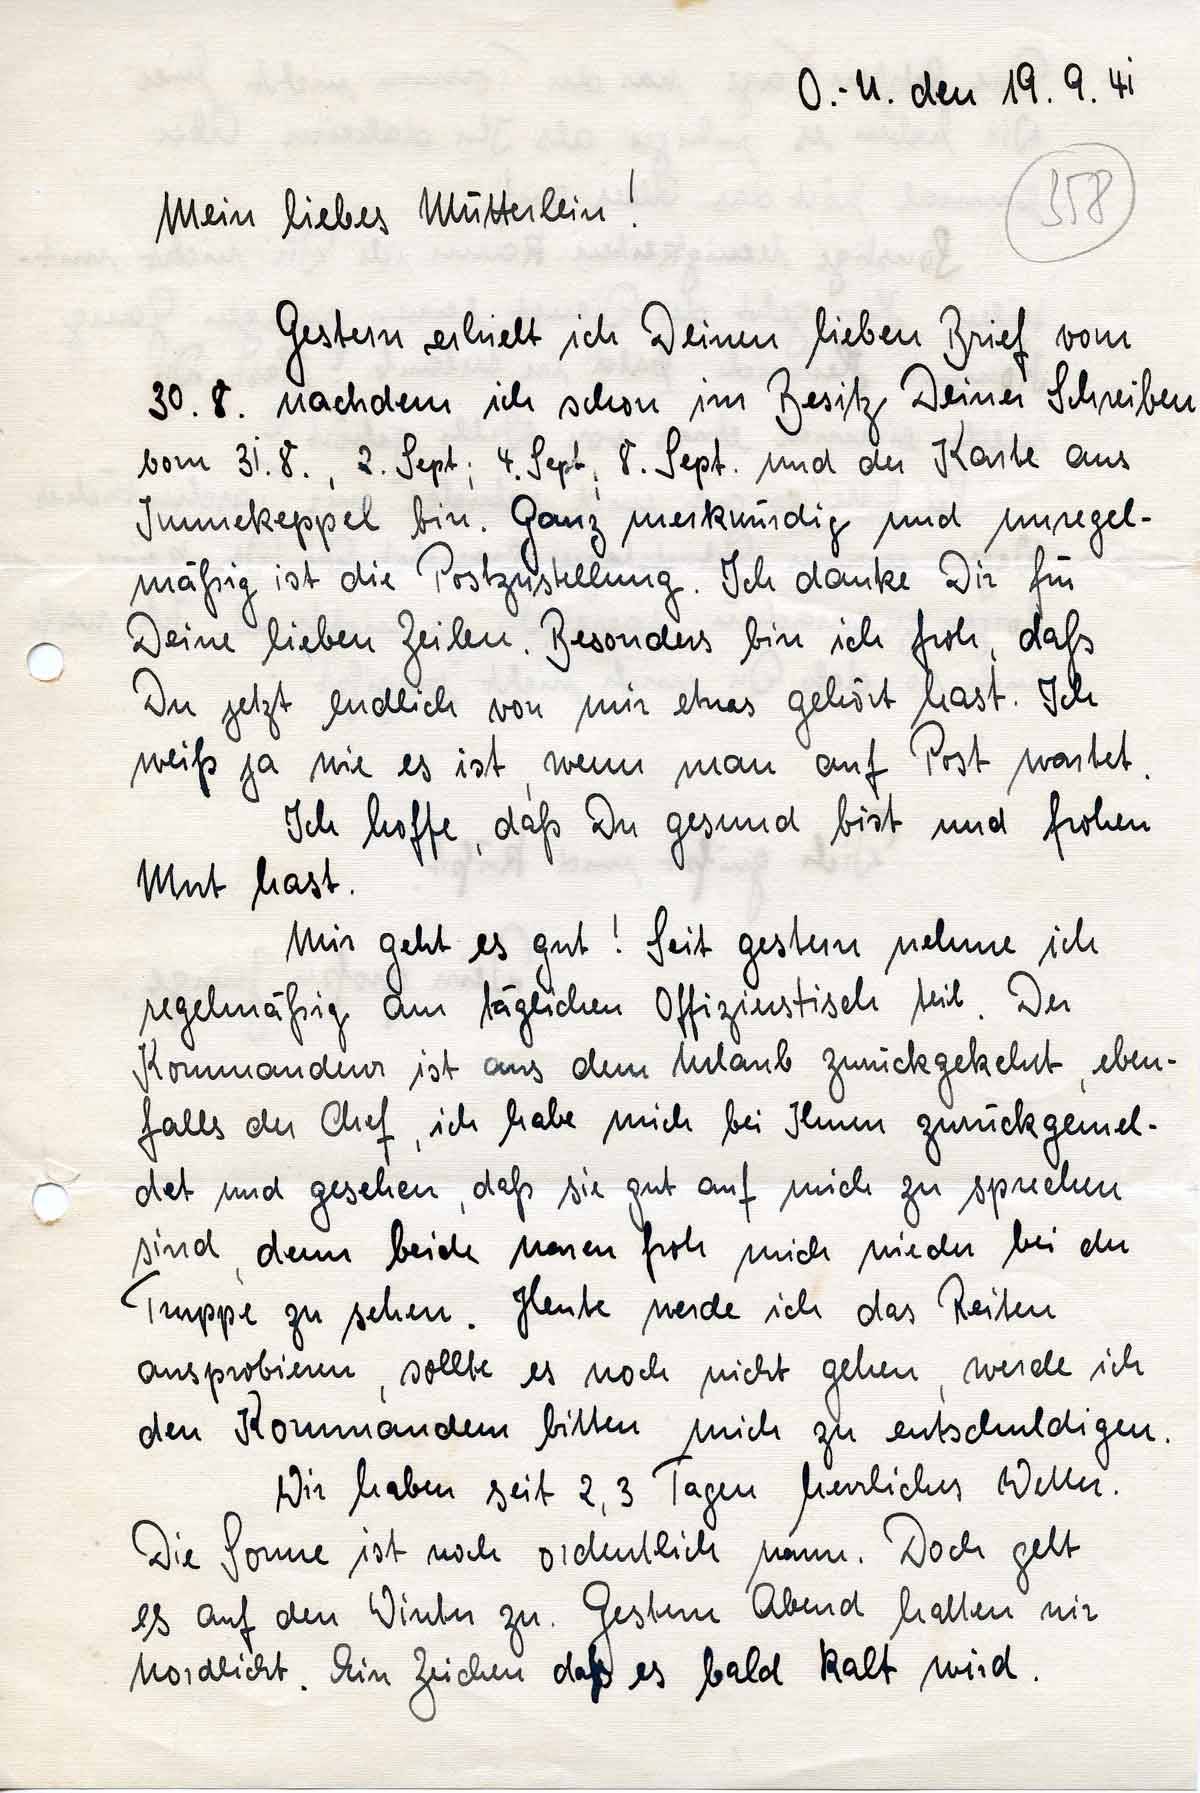 O.-U. den 19. 9. 41
358
Mein liebes Mütterlein!
Gestern erhielt ich Deinen lieben Brief vom
30. 8. nachdem ich schon im Besitz Deiner Schreiben
vom 31. 8., 2. Sept; 4. Sept; 8. Sept. und der Karte aus
Immekeppel bin. Ganz merkwürdig und unregel-
mäßig ist die Postzustellung. Ich danke Dir für
Deine lieben Zeilen. Besonders bin ich froh, daß
Du jetzt endlich von mir etwas gehört hast. Ich
weiß ja wie es ist, wenn man auf Post wartet.
Ich hoffe, daß Du gesund bist und frohen
Mut hast.
Mir geht es gut! Seit gestern nehme ich
regelmäßig am täglichen Offizierstisch teil. Der
Kommandeur ist aus dem Urlaub zurückgekehrt, eben-
falls der Chef, ich habe mich bei Ihnen zurückgemel-
det und gesehen, daß sie gut auf mich zu sprechen
sind, denn beide waren froh mich wieder bei der
Truppe zu sehen. Heute werde ich das Reiten
ausprobieren, sollte es noch nicht gehen, werde ich
den Kommandeur bitten mich zu entschuldigen.
Wir haben seit 2, 3 Tagen herrliches Wetter.
Die Sonne ist noch ordentlich warm. Doch geht
es auf den Winter zu. Gestern Abend hatten wir
Nordlicht. Ein Zeichen daß es bald kalt wird.